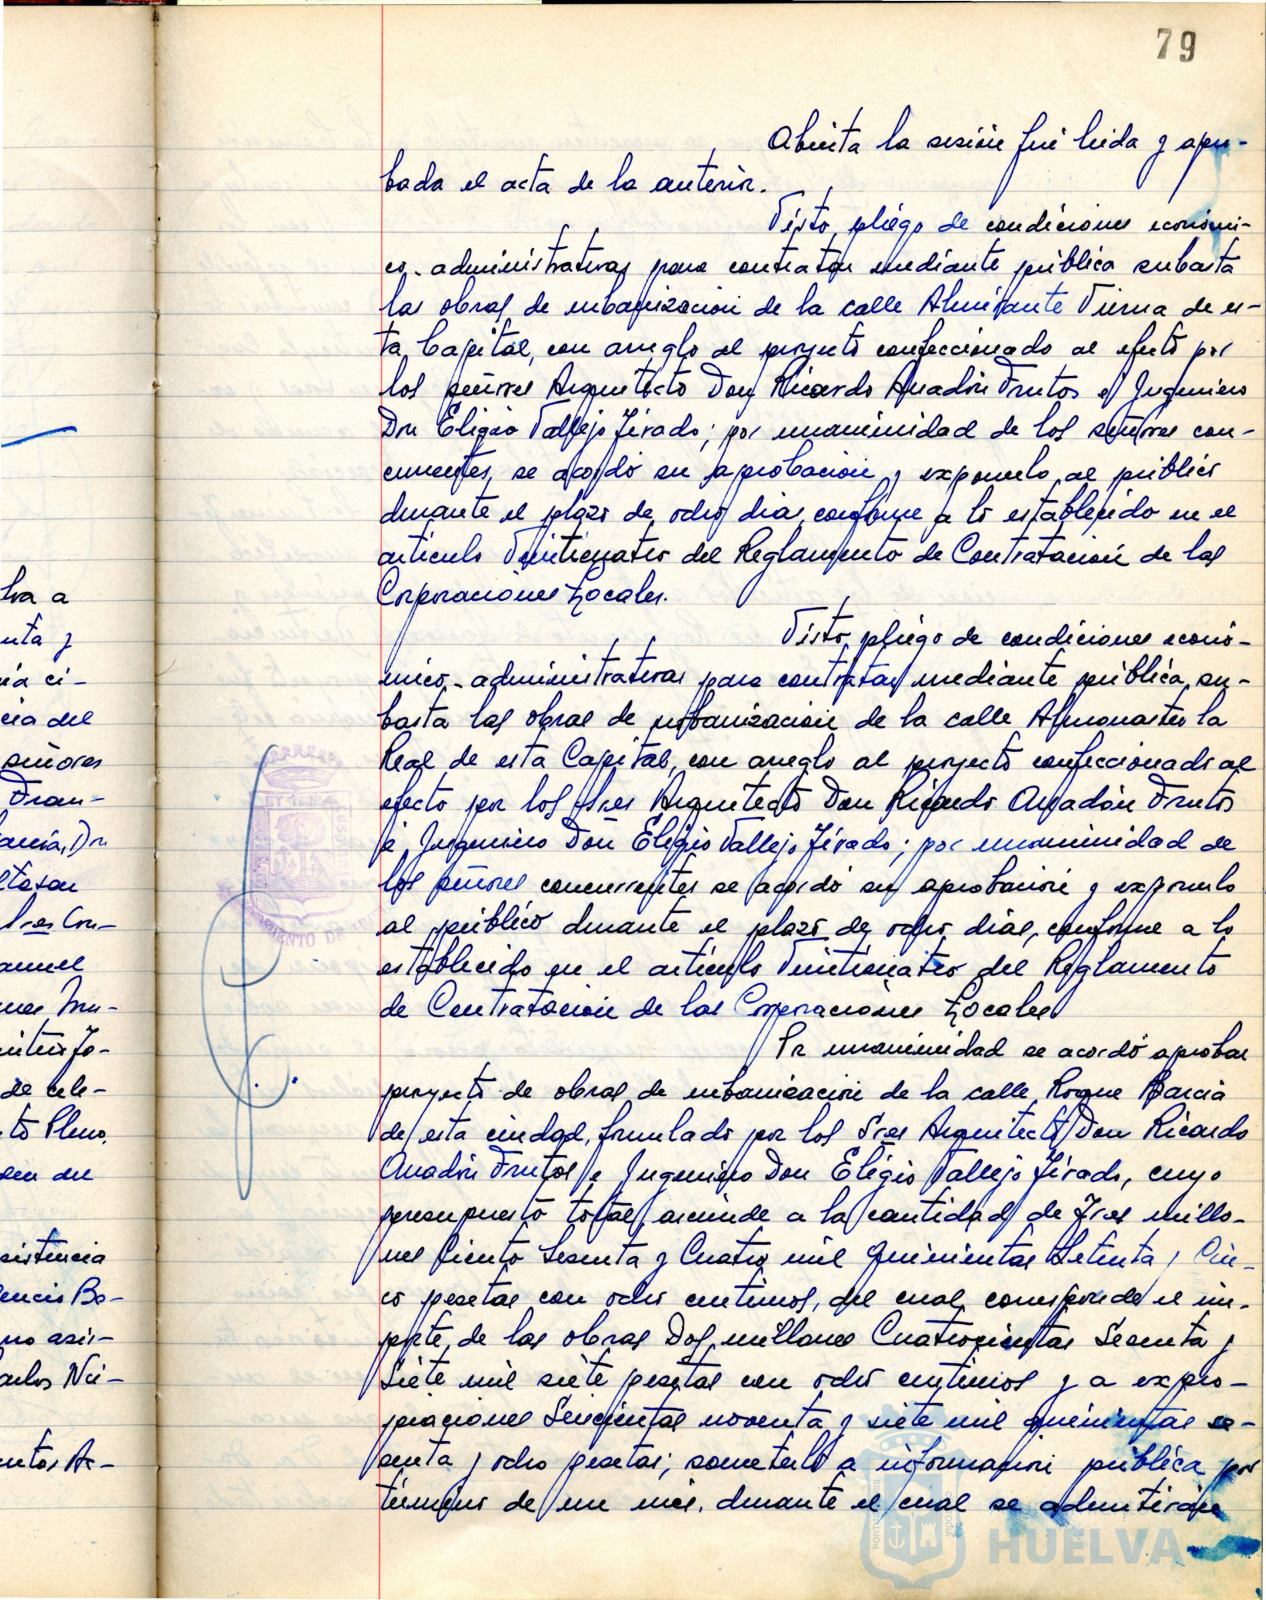 79
Abierta la sesión fué leida y apro-
bada el acta de la anterior.
Visto pliego de condiciones económi-
co-administrativas para contratar mediante pública subasta
las obras de urbanización de la calle Almirante Pinzón de es-
ta Capital, con arreglo al proyecto confeccionado al efecto por
los señores Arquitecto Don Ricardo Anadón Frutos e Ingeniero
Don Eligio Vallejo Tirado; por unanimidad de los señores con-
currentes, se acordó su aprobación y exponerlo al público
durante el plazo de ocho dias, conforme a lo establecido en el
artículo Veinticuatro del Reglamento de Contratación de las
Corporaciones Locales.
Visto pliego de condiciones econó-
mico-administrativas para contratar mediante pública su-
basta las obras de urbanización de la calle Almonaster la
Real de esta Capital, con arreglo al proyecto confeccionado al
efecto por los Sres Arquitecto Don Ricardo Anadón Frutos
é Ingeniero Don Eligio Vallejo Tirado; por unanimidad de
los señores concurrentes se acordó su aprobación y exponerlo
al público durante el plazo de ocho dias, conforme a lo
establecido en el artículo Veinticuatro del Reglamento
de Contratación de las Corporaciones Locales
Por unanimidad se acordó aprobar
proyecto de obras de urbanización de la calle Roque Barcia
de esta ciudad, formulado por los Sres Arquitecto Don Ricardo
Anadón Frutos e Ingeniero Don Eligio Vallejo Tirado, cuyo
presupuesto total asciende a la cantidad de Tres millo-
nes Ciento Sesenta y Cuatro mil Quinientas Setenta y Cin-
co pesetas con ocho centimos, del cual corresponde el im-
porte de las obras Dos millones Cuatrocientas Sesenta y
Siete mil siete pesetas con ocho centimos y a expro-
piaciones Seiscientas noventa y siete mil quinientas se-
senta y ocho pesetas; someterlo a información pública por
término de un mes, durante el cual se admitirán
lva a
nta y
ia ci-
cia del
señores
Fran-
arcía, Don
ltasar
Sres Con-
anuel
de cele-
to Pleno,
den del
sistencia
encio Bo-
no asis-
arlos Nú-
HUELVA